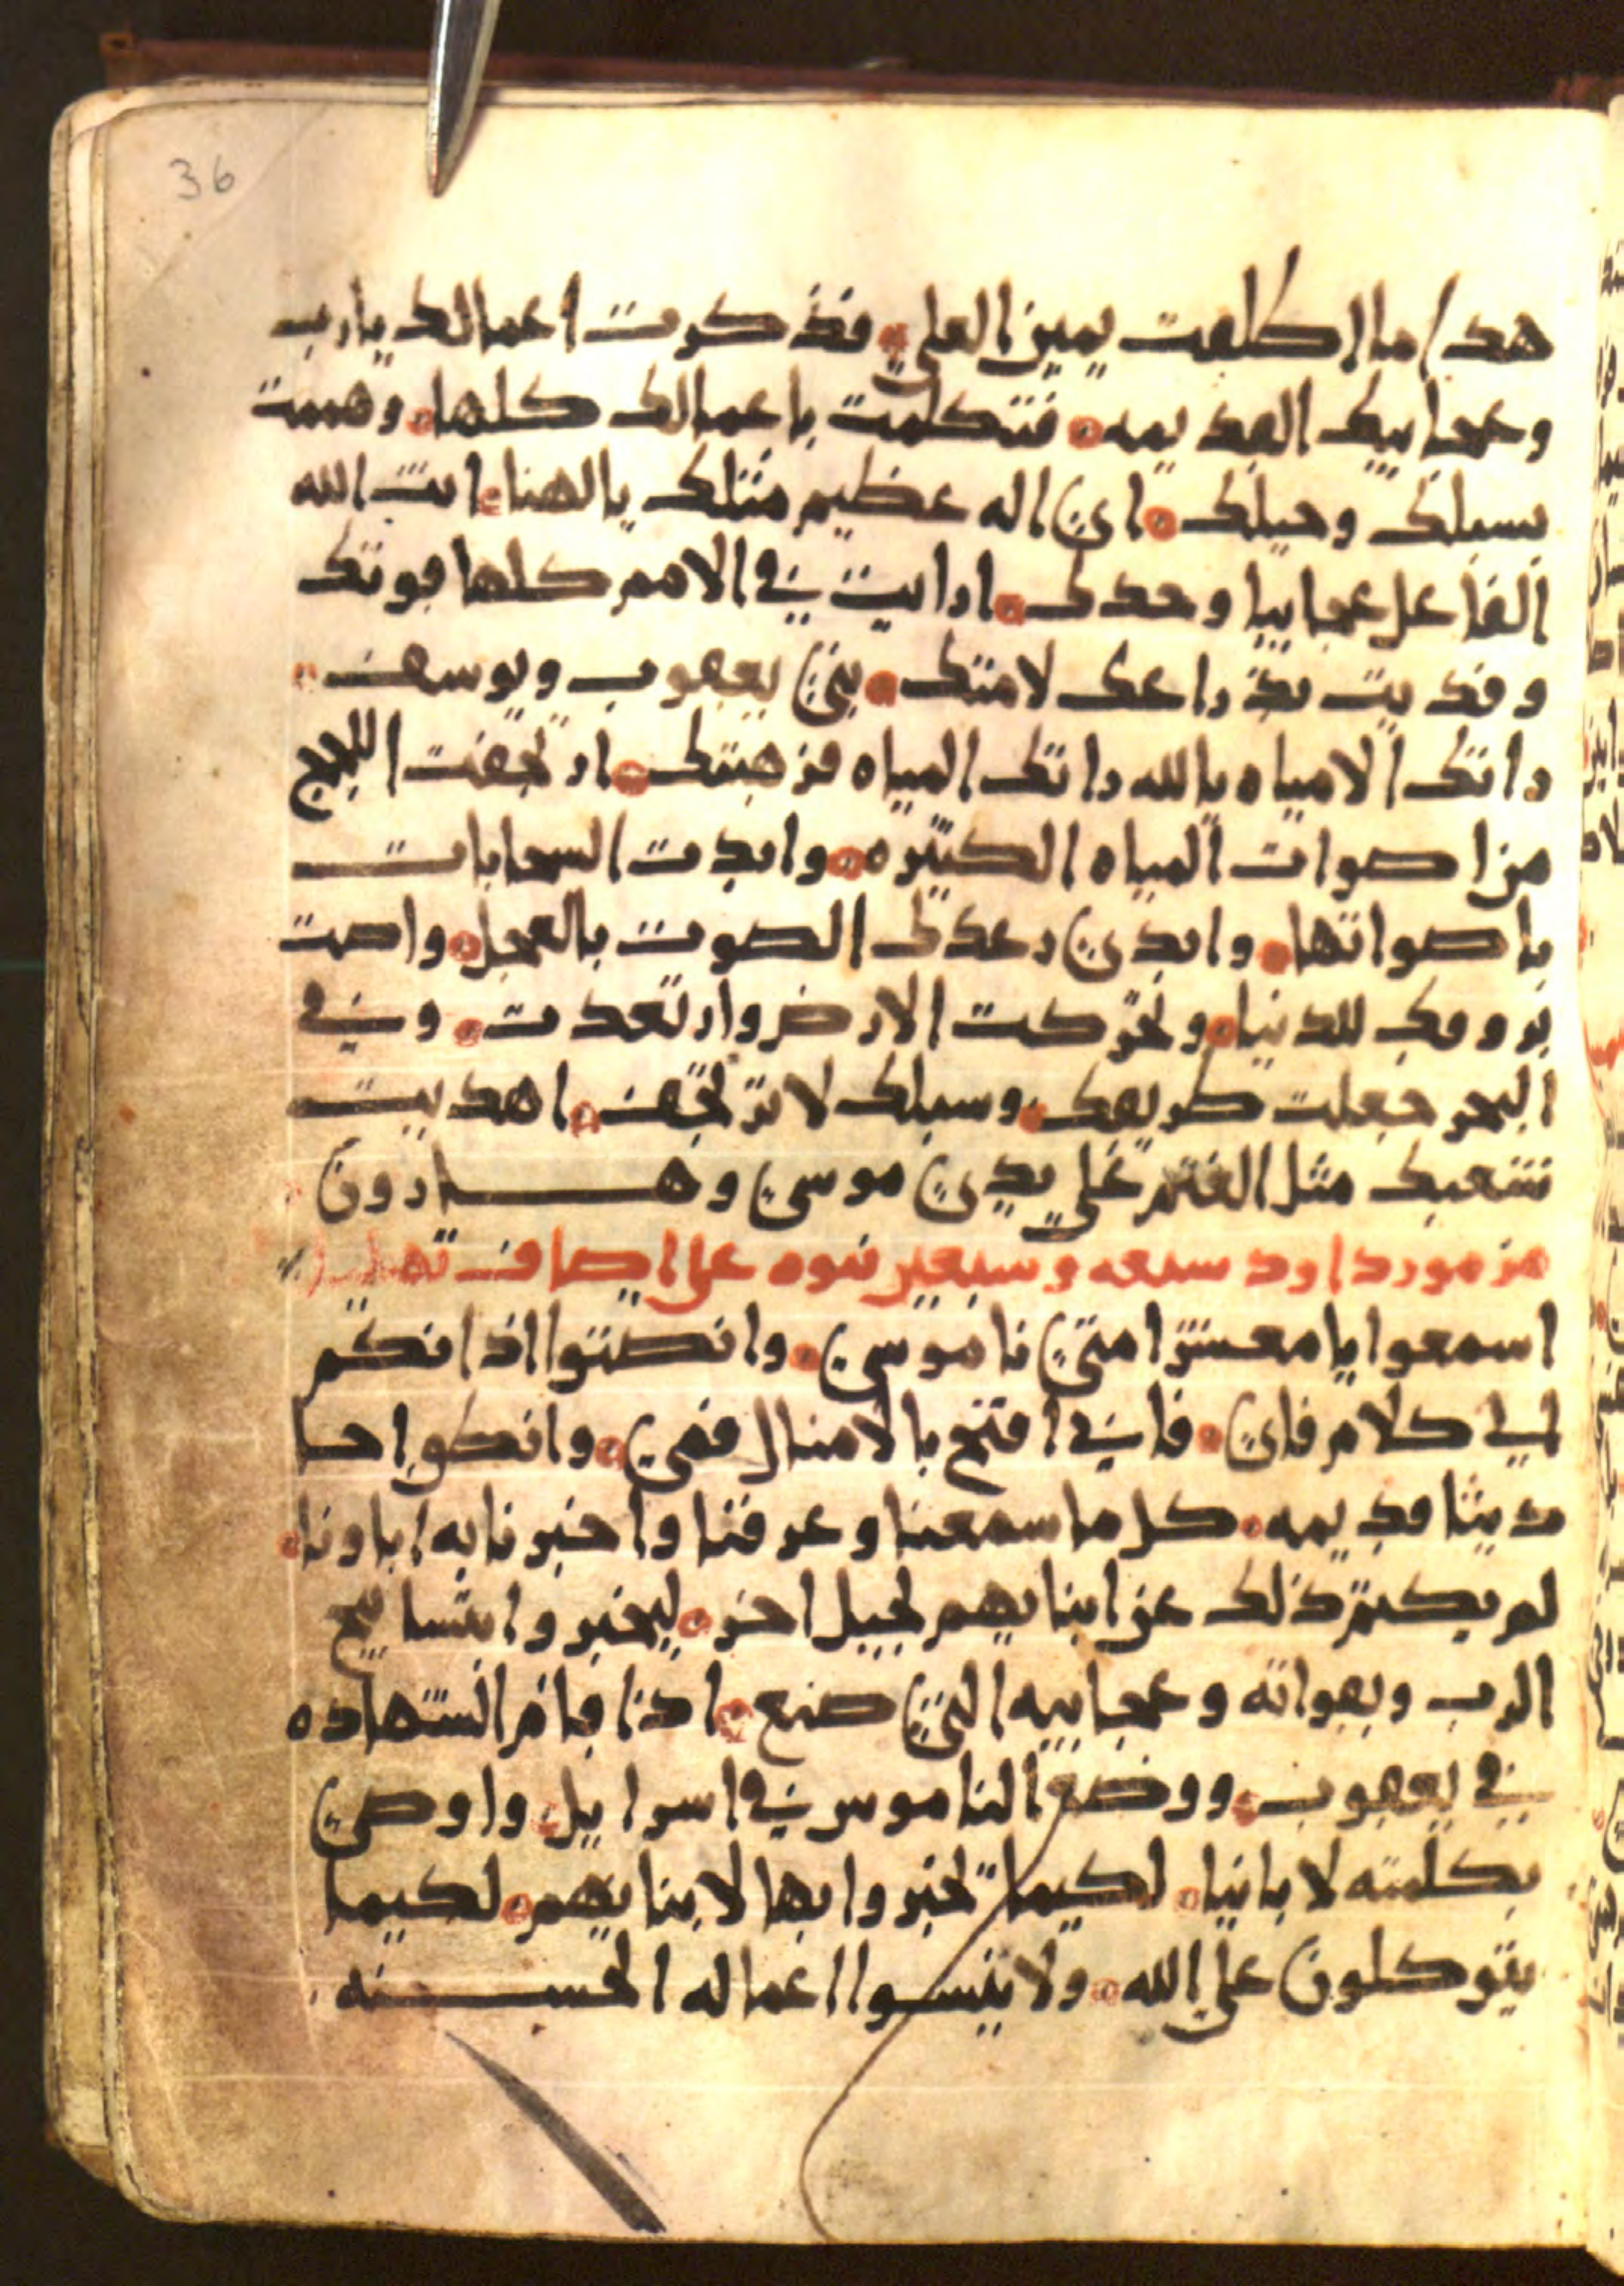 36
هدا ما اطلعت يمين العلي فذكرت اعمالك يارب
وعجايبك القديمه فتكلمت باعمالك كلها وهممت
بسبلك وحيلك اي اله عظيم مثلك يا الهنا انت الله
الفاعل عجايبا وحدك ارايت في الامم كلها قوتك
وفديت بذراعك لامتك بني يعقوب ويوسف
راتك الامياه يا الله راتك المياه فزهبتك ارتجفت اللجج
من اصوات المياه الكثيره وابدت السحابات
باصواتها وابدي رعدك الصوت بالعجل واضت
بروقك للدنيا وتحركت الارض وارتعدت وفي
البحر جعلت طريقك وسبلك لا ترتجف اهديت
شعبك مثل الغنم علي يدي موسي وهارون
مزمور داود سبعه وسبعين نبوه علي اصاف
اسمعوا يا معشر امتي ناموسي وانصتوا اذانكم
لي كلام فاي فاني افتح بالامثال فمي وانطق احا
ديثا قديمه كل ما سمعنا وعرفنا واخبرنا به اباونا
لم يكتم ذلك عن ابنايهم لجيل اخر ليخبروا بتسابيح
الرب وبقواته وعجايبه التي صنع اذا قام الشهاده
في يعقوب ووضع الناموس في اسراييل واوصي
بكلمته لابانيا لكيما تخبروا بها لابنايهم لكيما
يتوكلون علي الله ولا ينسوا اعماله الحسنه